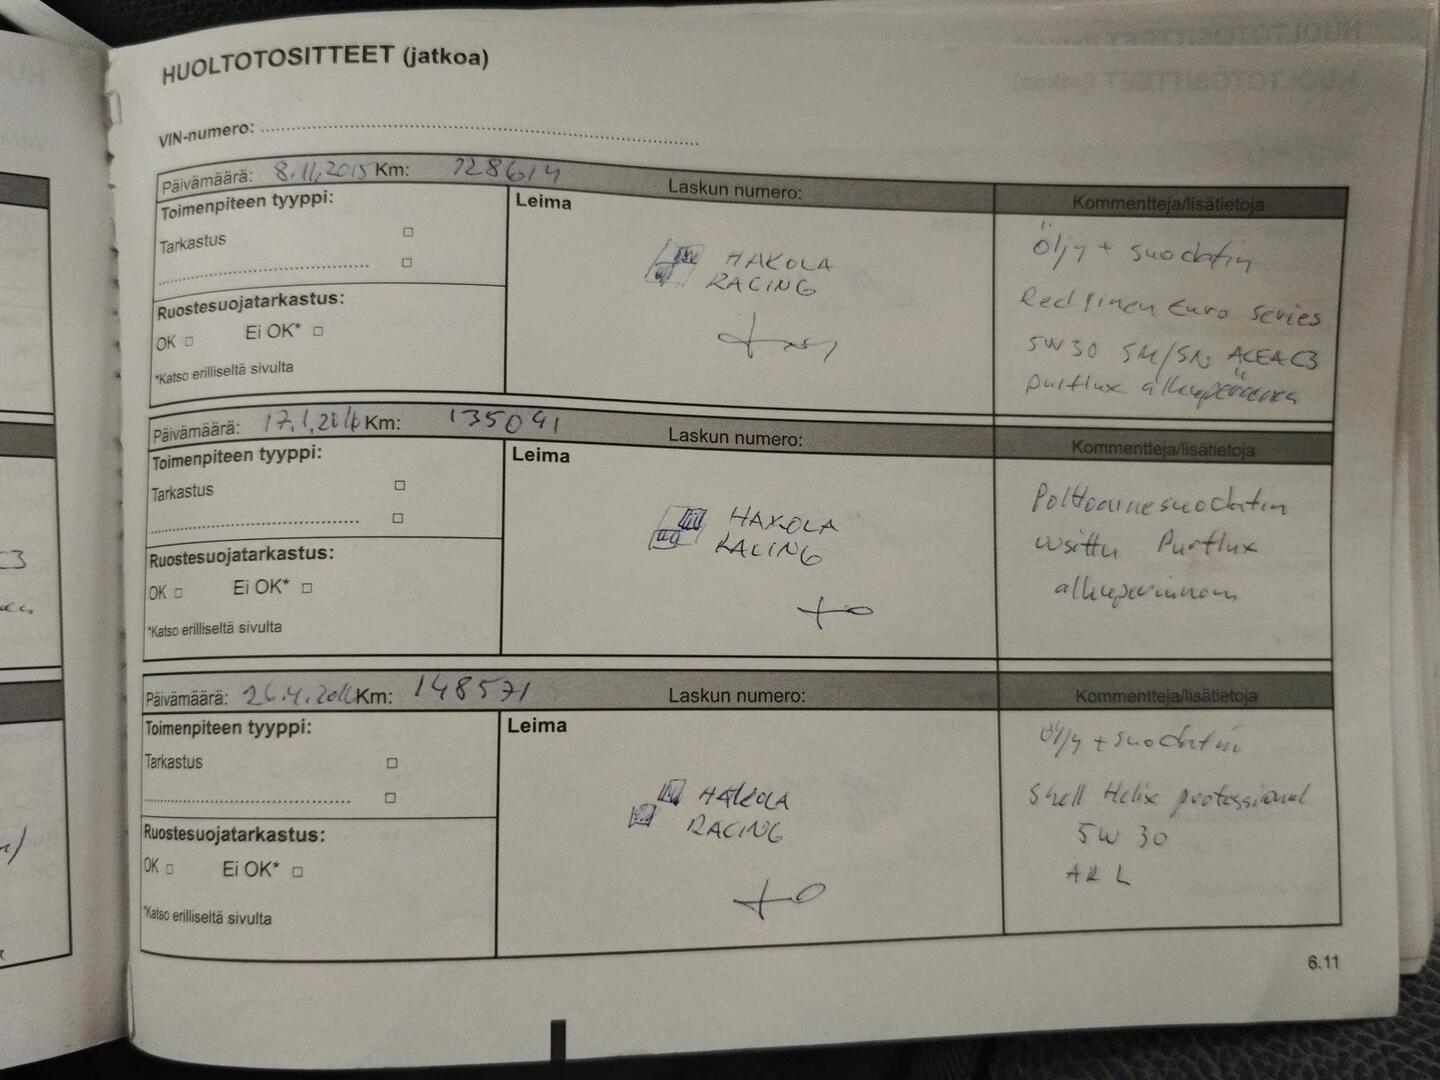 HUOLTOTOSITTEET (jatkoa)
VIN-numero:
Päivämäärä: 8.11.2015 Km: 128614 Laskun numero: Kommentteja/lisätietoja
Toimenpiteen tyyppi:
Tarkastus
Ruostesuojatarkastus:
OK Ei OK*
*Katso erilliseltä sivulta
Leima
HAKOLA
RACING
Öljy + suodatin
Redlinen Euro Series
5W30 SM/SN ACEA C3
purflux alkuperäinen
Päivämäärä: 17.1.2016 Km: 135091 Laskun numero: Kommentteja/lisätietoja
Toimenpiteen tyyppi:
Tarkastus
Ruostesuojatarkastus:
OK Ei OK*
*Katso erilliseltä sivulta
Leima
HAKOLA
RACING
Polttoainesuodatin
uusittu Purflux
Päivämäärä: 26.4.2016 Km: 148571 Laskun numero: Kommentteja/lisätietoja
Toimenpiteen tyyppi:
Tarkastus
Ruostesuojatarkastus:
OK Ei OK*
*Katso erilliseltä sivulta
Leima
HAKOLA
RACING
Öljy + suodatin
Shell Helix professional
5W 30
ARL
6.11
C3